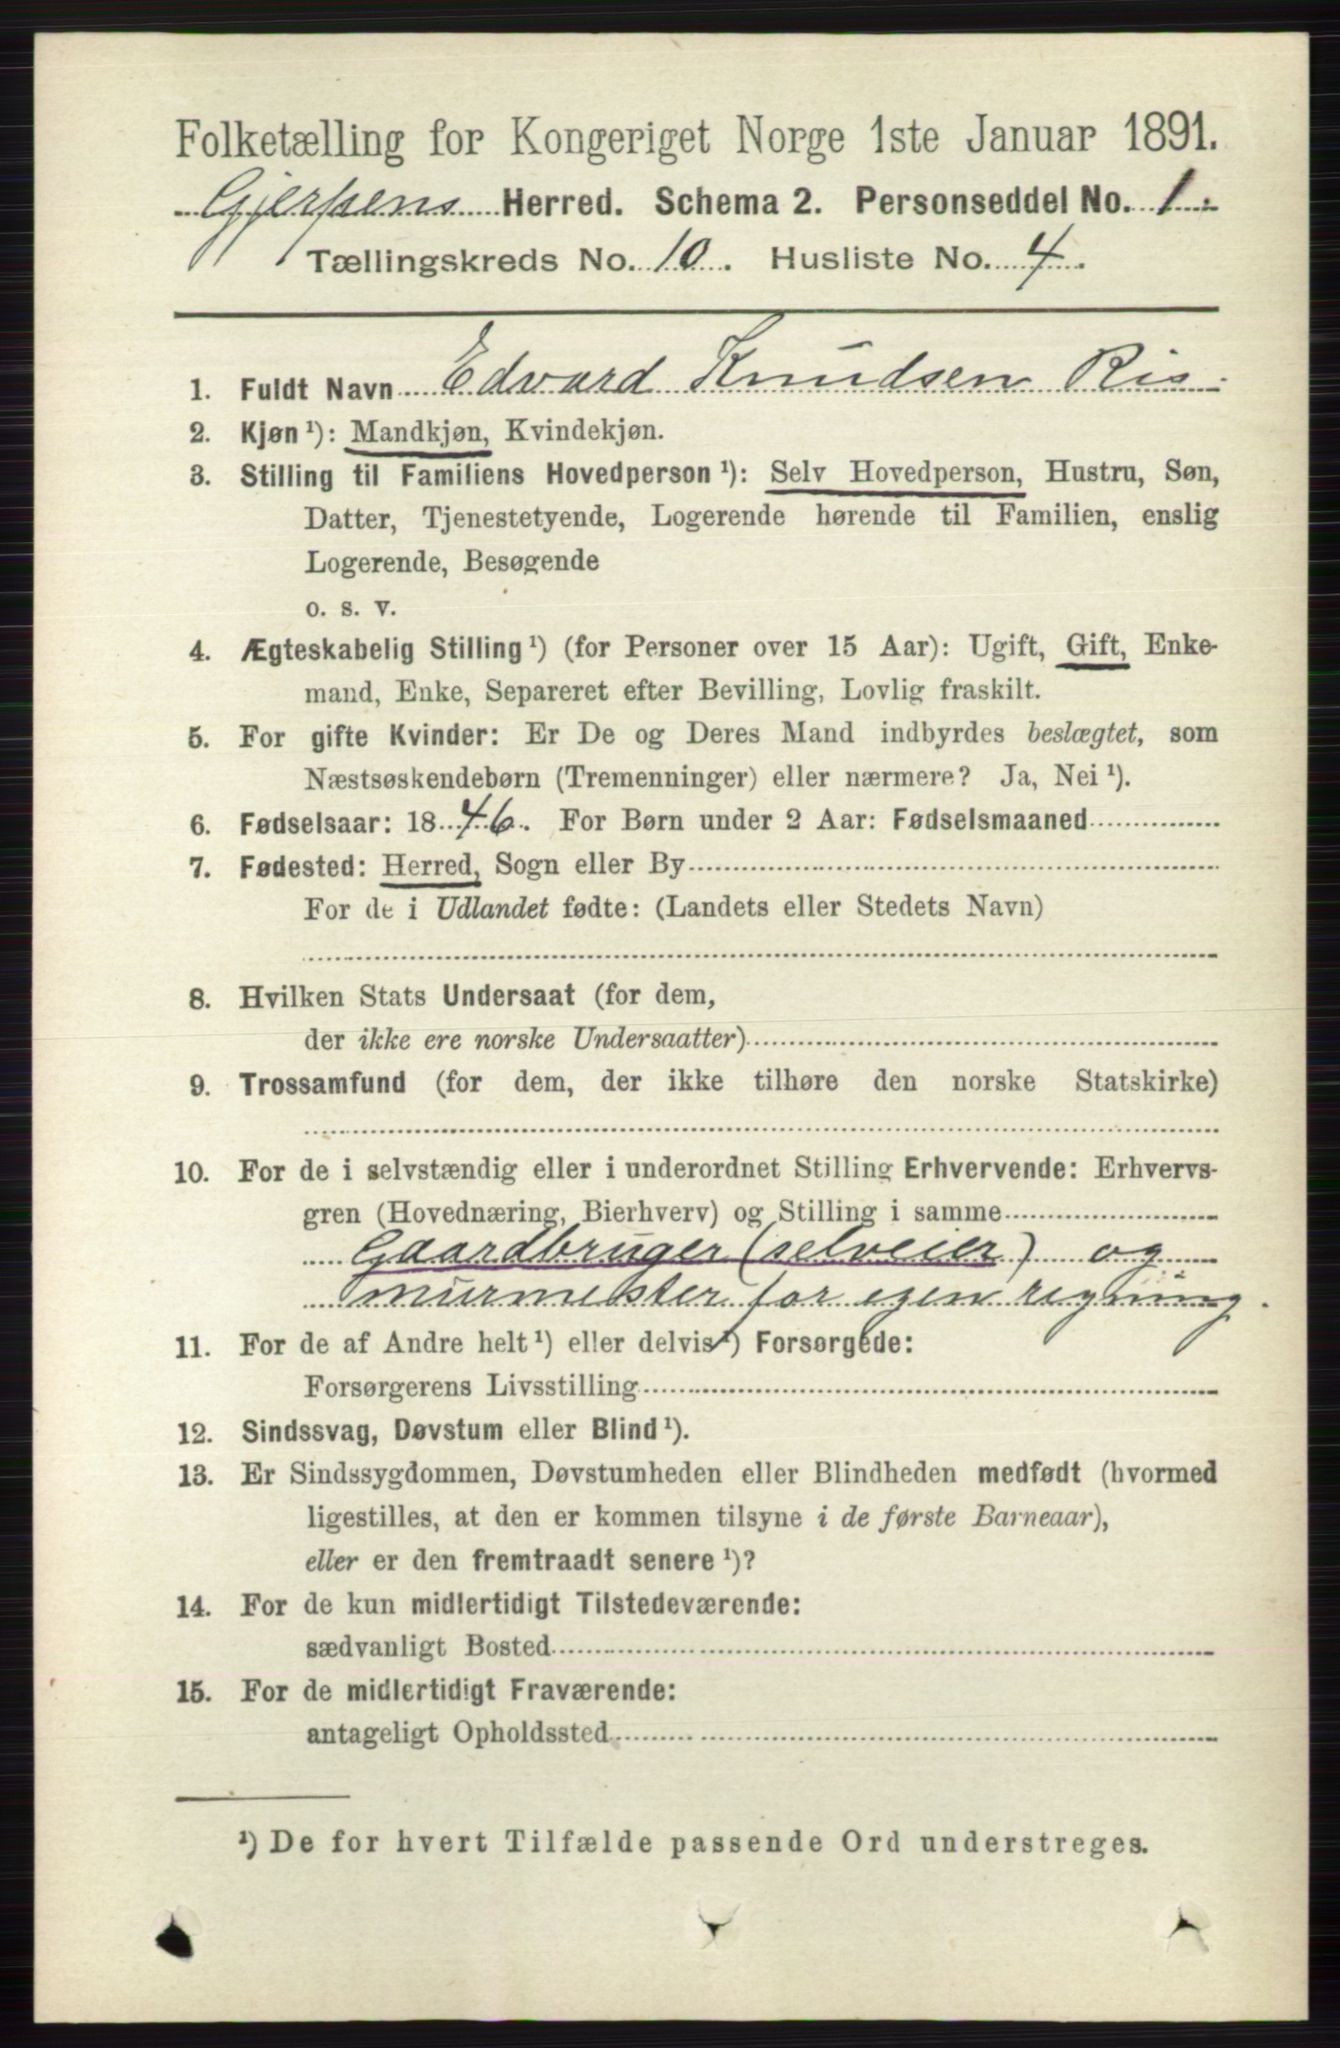 Folketælling for Kongeriget Norge 1ste Januar 1891.
Gjerpens Herred. Schema 2. Personseddel No. 1.
Tællingskreds No. 10. Husliste No. 4.
1. Fuldt Navn Edvard Knudsen Ris.
2. Kjøn ¹): Mandkjøn, Kvindekjøn.
3. Stilling til Familiens Hovedperson ¹): Selv Hovedperson, Hustru, Søn,
Datter, Tjenestetyende, Logerende hørende til Familien, enslig
Logerende, Besøgende
o. s. v.
4. Ægteskabelig Stilling ¹) (for Personer over 15 Aar): Ugift, Gift, Enke-
mand, Enke, Separeret efter Bevilling, Lovlig fraskilt.
5. For gifte Kvinder: Er De og Deres Mand indbyrdes beslægtet, som
Næstsøskendebørn (Tremenninger) eller nærmere? Ja, Nei ¹).
6. Fødselsaar: 1846. For Børn under 2 Aar: Fødselsmaaned
7. Fødested: Herred, Sogn eller By
For de i Udlandet fødte: (Landets eller Stedets Navn)
8. Hvilken Stats Undersaat (for dem,
der ikke ere norske Undersaatter)
9. Trossamfund (for dem, der ikke tilhøre den norske Statskirke)
10. For de i selvstændig eller i underordnet Stilling Erhvervende: Erhvervs-
gren (Hovednæring, Bierhverv) og Stilling i samme
Gaardbruger (selveier) og
murmester for egen regning.
11. For de af Andre helt ¹) eller delvis ¹) Forsørgede:
Forsørgerens Livsstilling
12. Sindssvag, Døvstum eller Blind ¹).
13. Er Sindssygdommen, Døvstumheden eller Blindheden medfødt (hvormed
ligestilles, at den er kommen tilsyne i de første Barneaar),
eller er den fremtraadt senere ¹)?
14. For de kun midlertidigt Tilstedeværende:
sædvanligt Bosted
15. For de midlertidigt Fraværende:
antageligt Opholdssted
¹) De for hvert Tilfælde passende Ord understreges.